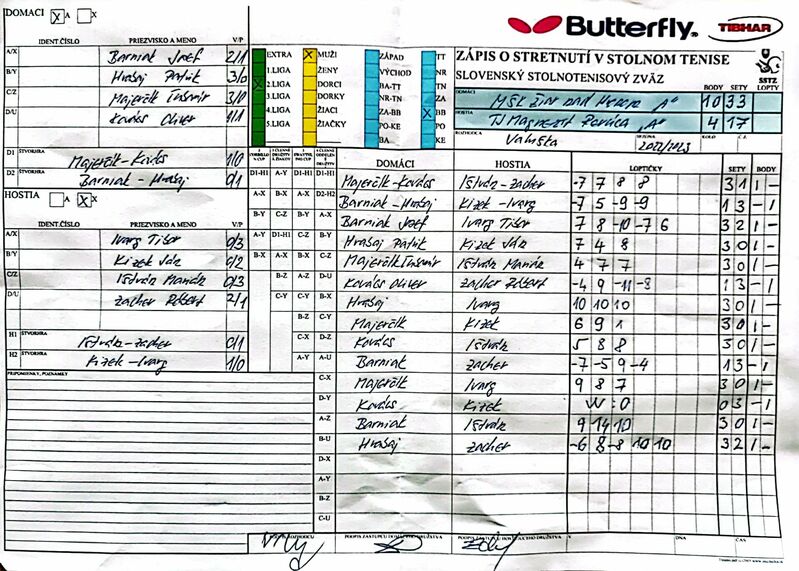 DOMACI X A X
Butterfly
TIBHAR
IDENT.ČÍSLO PRIEZVISKO A MENO V/P
A/X Barniak Jozef 2/1
B/Y Hrašaj Patrik 3/0
C/Z 3/0
D/U Kováčs Oliver 1/1
D1 ŠTVORHRA Majerčík-Kováčs 1/0
D2 ŠTVORHRA Barniak-Hrašaj 0/1
HOSTIA A X X
IDENT.ČÍSLO PRIEZVISKO A MENO V/P
A/X Ivarg Tibor 0/3
B/Y Kizek Ján 0/2
C/Z István Marián 0/3
D/U Zacher Róbert 2/1
H1 ŠTVORHRA István-Zacher 0/1
H2 ŠTVORHRA Kizek-Ivarg 1/0
PRIPOMIENKY, POZNÁMKY
EXTRA
1.LIGA
X 2.LIGA
3.LIGA
4.LIGA
5.LIGA
X MUŽI
ŽENY
DORCI
DORKY
ŽIACI
ŽIAČKY
ZÁPAD
VÝCHOD
BA-TT
NR-TN
ZA-BB
PO-KE
BA
TT
NR
TN
ZA
X BB
PO
KE
ZÁPIS O STRETNUTÍ V STOLNOM TENISE
SLOVENSKÝ STOLNOTENISOVÝ ZVÄZ
SSTZ
BODY SETY LOPTY
DOMÁCI "A" 10 33
HOSTIA TJ "A" 4 17
ROZHODCA SEZÓNA 2022/2023 KOLO Č.Z.
D1-H1 A-Y D1-H1
A-X B-X D2-H2
B-Y C-Z A-X
A-Y D1-H1 C-Z B-Y
B-X A-X C-Z
B-Z A-Z D-U
C-Y B-X
B-Z C-Y
C-X D-Z
A-Y A-U
C-X
D-Y
A-Z
B-U
D-X
A-Y
B-Z
C-U
DOMÁCI HOSTIA LOPTIČKY SETY BODY
Majerčík-Kováčs István-Zacher -7 7 8 8 3 1 1 -
Barniak-Hrašaj Kizek-Ivarg -7 5 -9 -9 1 3 - 1
Barniak Jozef Ivarg Tibor 7 8 -10 -7 6 3 2 1 -
Hrašaj Patrik Kizek Ján 7 4 8 3 0 1 -
István Marián 4 7 7 3 0 1 -
Kováčs Oliver Zacher Róbert -4 9 -11 -8 1 3 - 1
Hrašaj Ivarg 10 10 10 3 0 1 -
Majerčík Kizek 6 9 1 3 0 1 -
Kováčs István 5 8 8 3 0 1 -
Barniak Zacher -7 -5 9 -4 1 3 - 1
Majerčík Ivarg 9 8 7 3 0 1 -
Kováčs Kizek W:0 0 3 - 1
Barniak István 9 14 10 3 0 1 -
Hrašaj Zacher -6 8 -8 10 10 3 2 1 -
PODPIS ZÁSTUPCU DOMÁCEHO DRUŽSTVA
PODPIS ZÁSTUPCU HOSŤUJÚCEHO DRUŽSTVA
V
DŇA
ČAS